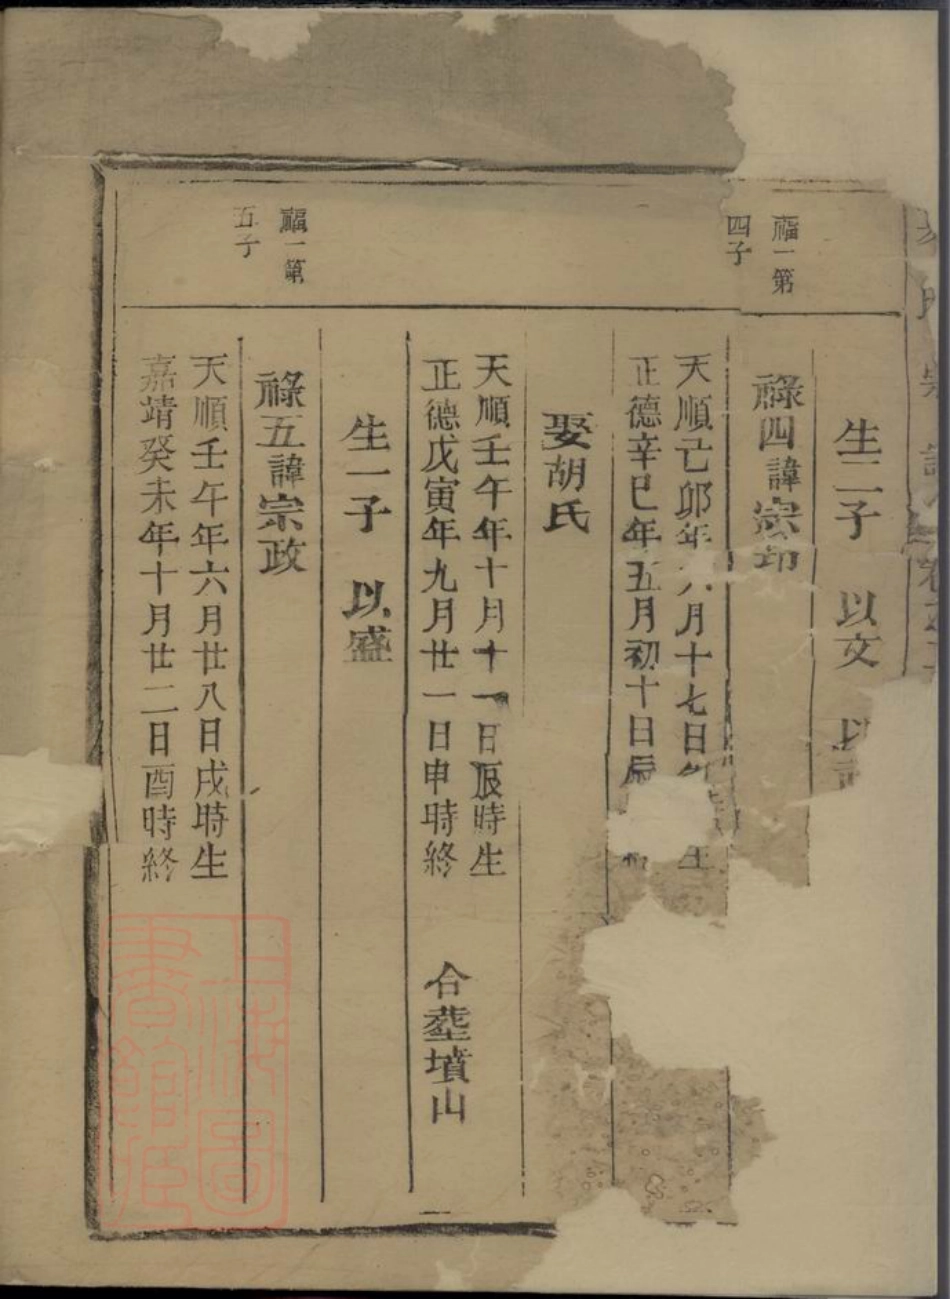 生二子 以文 以
福一第
四子
祿四諱宗
天順己卯年六月十七日 生
正德辛巳年五月初十日辰
娶胡氏
天順壬午年十月十一日辰時生
正德戊寅年九月廿一日申時終
合塟墳山
生一子 以盛
福一第
五子
祿五諱宗政
天順壬午年六月廿八日戌時生
嘉靖癸未年十月廿二日酉時終
上海圖
書館藏